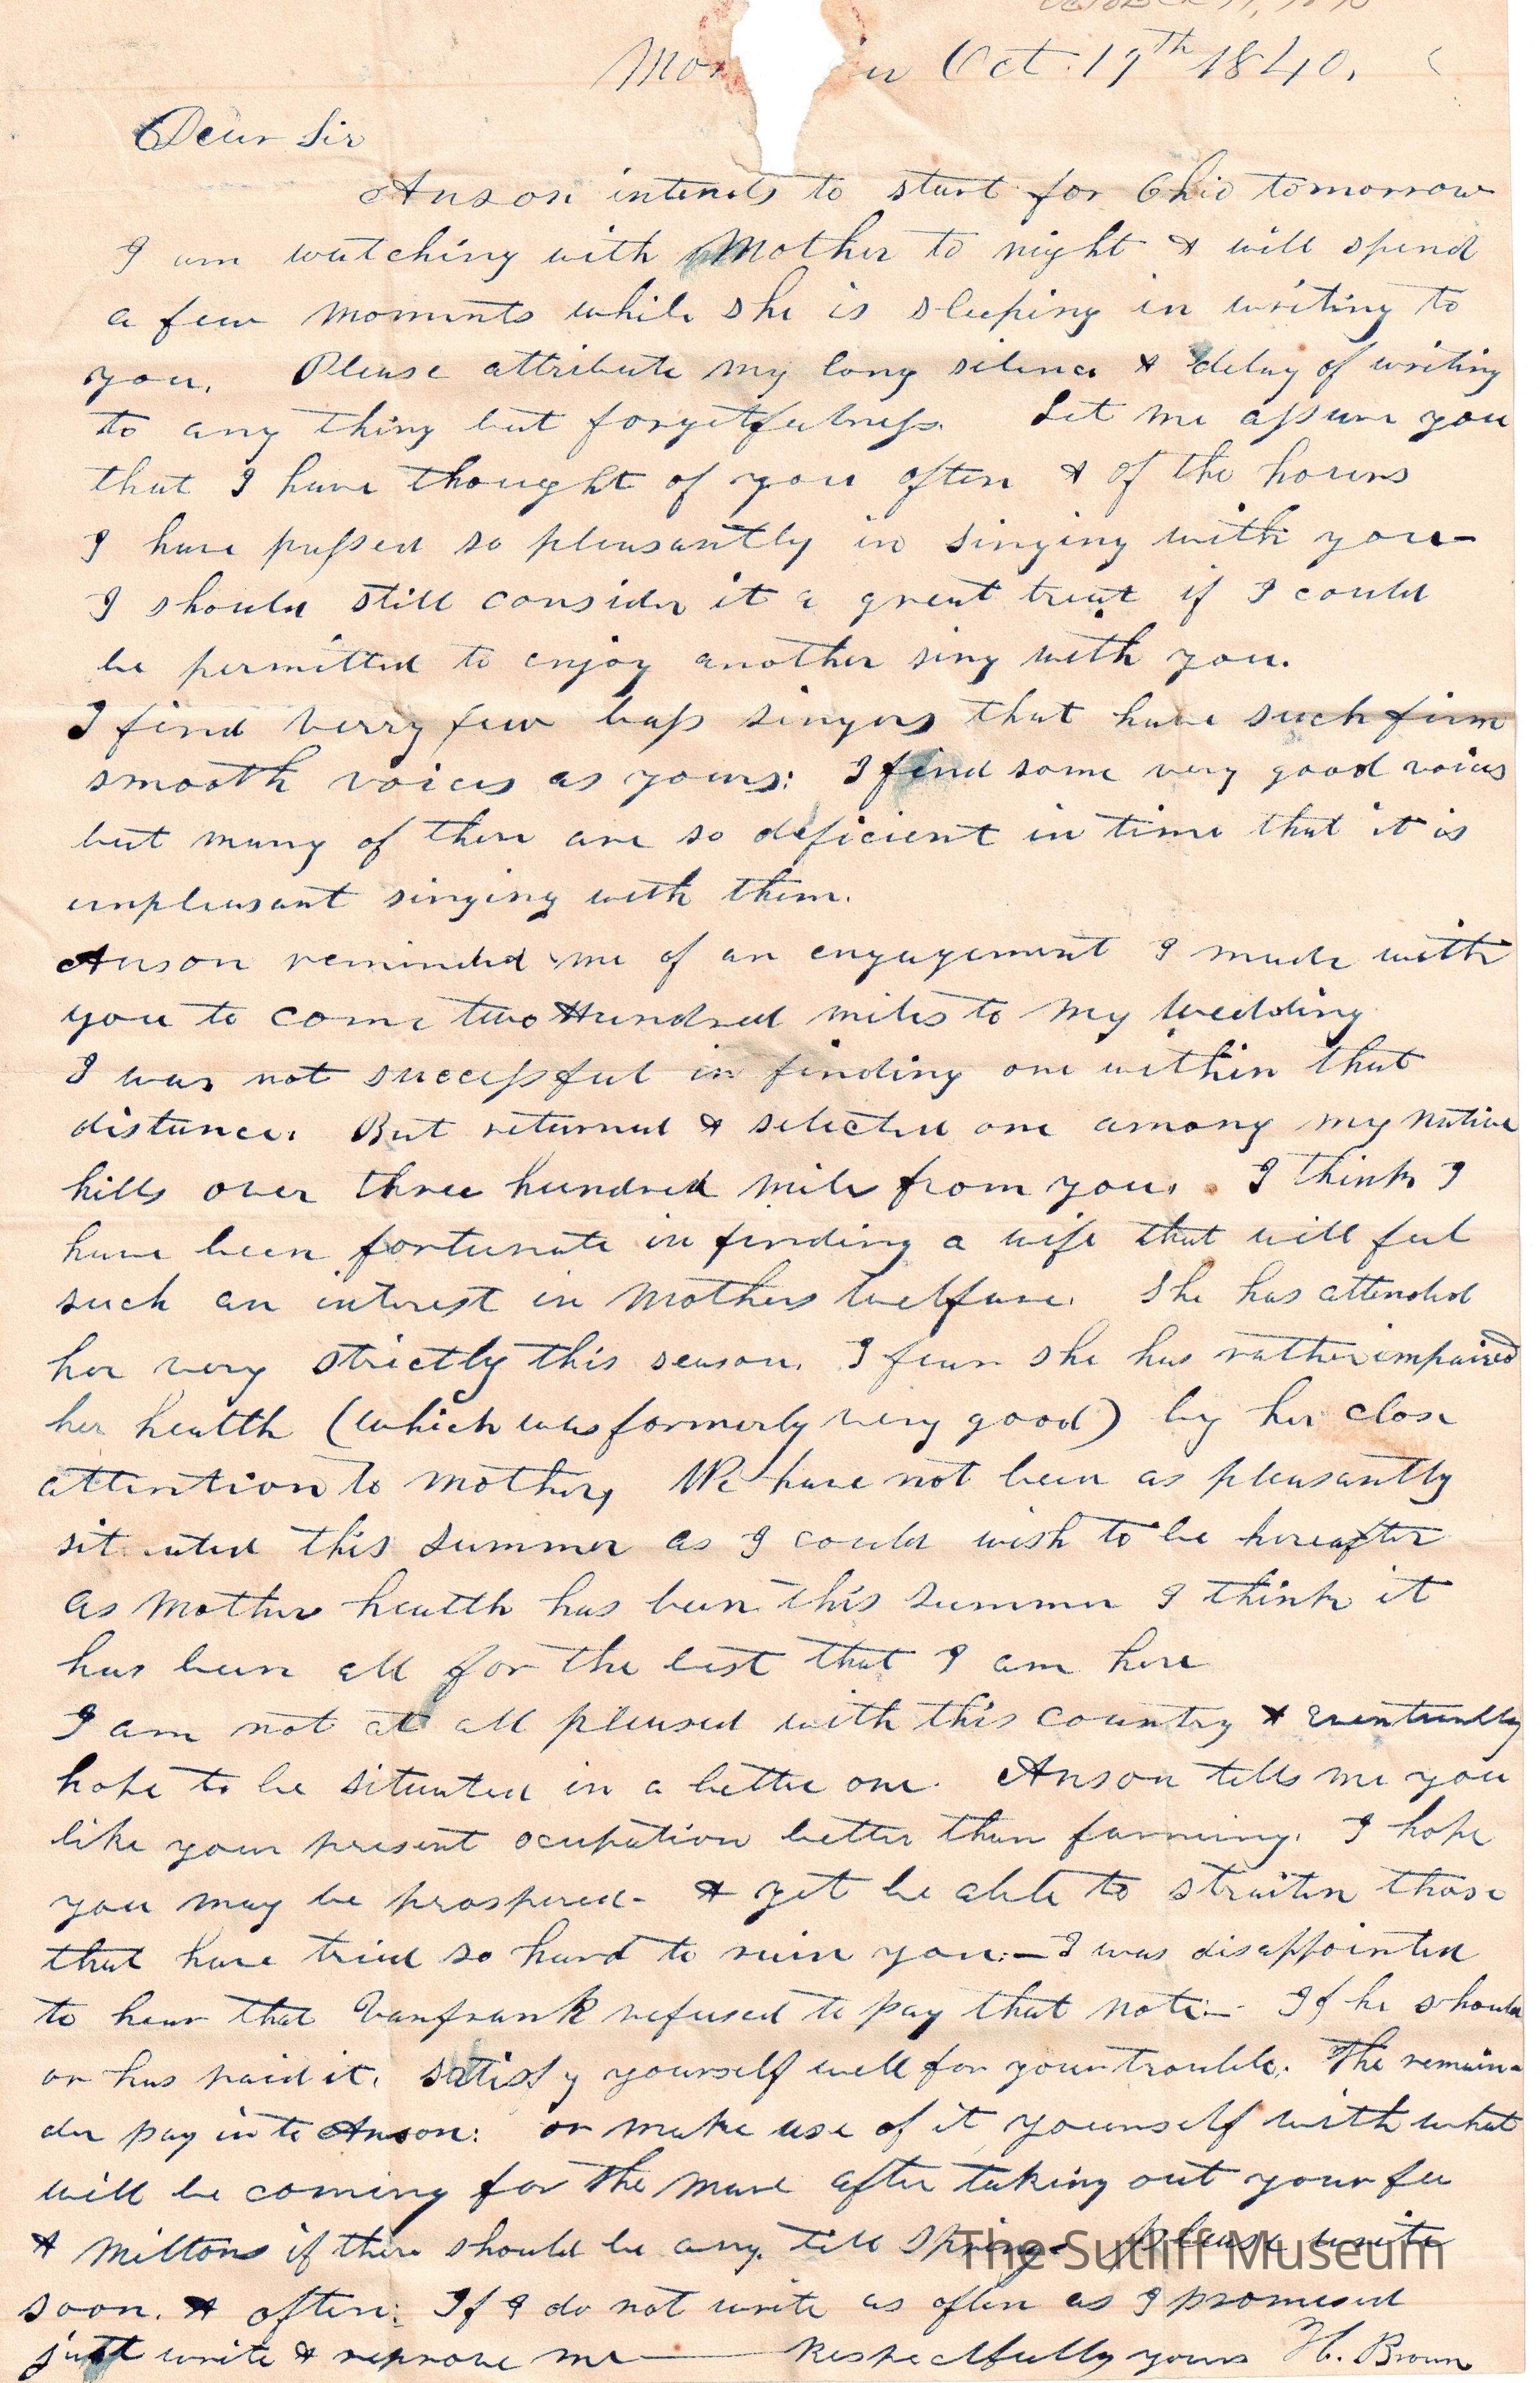 OCTOBER 19, 1840
Mor n Oct. 19th 1840.
Dear Sir
Anson intends to start for Ohio tomorrow
I am watching with Mother to night & will spend
a few moments while she is sleeping in writing to
you. Please attribute my long silence & delay of writing
to any thing but forgetfulness. Let me assure you
that I have thought of you often & of the hours
I have passed so pleasantly in singing with you—
I should still consider it a great treat if I could
be permitted to enjoy another sing with you.
I find verry few bass singers that have such firm
smooth voices as yours: I find some very good voices
but many of them are so deficient in time that it is
unpleasant singing with them.
Anson reminded me of an engagement I made with
you to come two Hundred miles to my wedding
I was not successful in finding one within that
distance. But returned & selected one among my native
hills over three hundred miles from you. I think I
have been fortunate in finding a wife that will feel
such an interest in Mothers welfare. She has attended
her very strictly this season. I fear she has rather impaired
her health (which was formerly very good) by her close
attention to Mother, We have not been as pleasantly
sit uated this summer as I could wish to be hereafter
as Mothers health has been this summer I think it
has been all for the best that I am here
I am not at all pleased with this country & eventually
hope to be situated in a better one. Anson tells me you
like your present ocupation better than farming. I hope
you may be prospered— & yet be able to straiten those
that have tried so hard to ruin you:— I was disappointed
to hear that Vanfrank refused to pay that note:— If he should
or has paid it. satisfy yourself well for your trouble. The remain-
der pay in to Anson: or make use of it yourself with what
will be coming for the mare after taking out your fee
& Miltons if there should be any. till spring— please write
soon. & often: If I do not write as often as I promised
just write & reprove me— Respectfully yours H. Brown
The Sutliff Museum